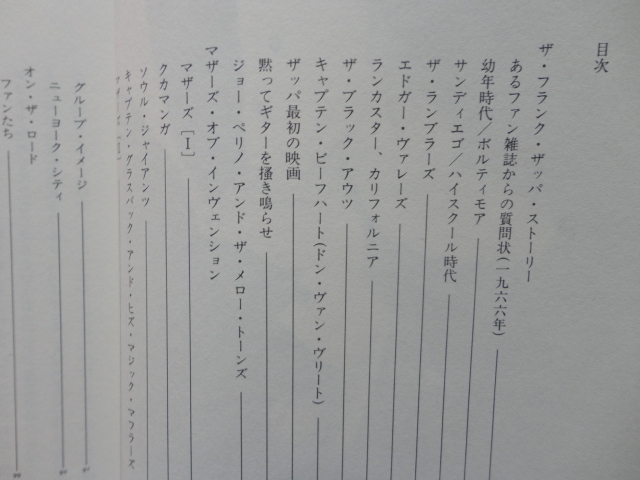 目次
ザ・フランク・ザッパ・ストーリー
あるファン雑誌からの質問状(一九六六年)
幼年時代/ボルティモア
サンディエゴ/ハイスクール時代
ザ・ランブラーズ
エドガー・ヴァレーズ
ランカスター、カリフォルニア
ザ・ブラック・アウツ
キャプテン・ビーフハート(ドン・ヴァン・ヴリート)
ザッパ最初の映画
黙ってギターを掻き鳴らせ
ジョー・ペリノ・アンド・ザ・メロー・トーンズ
マザーズ・オブ・インヴェンション
マザーズ[Ⅰ]
クカマンガ
ソウル・ジャイアンツ
キャプテン・グラスパック・アンド・ヒズ・マジック・マフラーズ
グループ・イメージ
ニューヨーク・シティ
オン・ザ・ロード
ファンたち